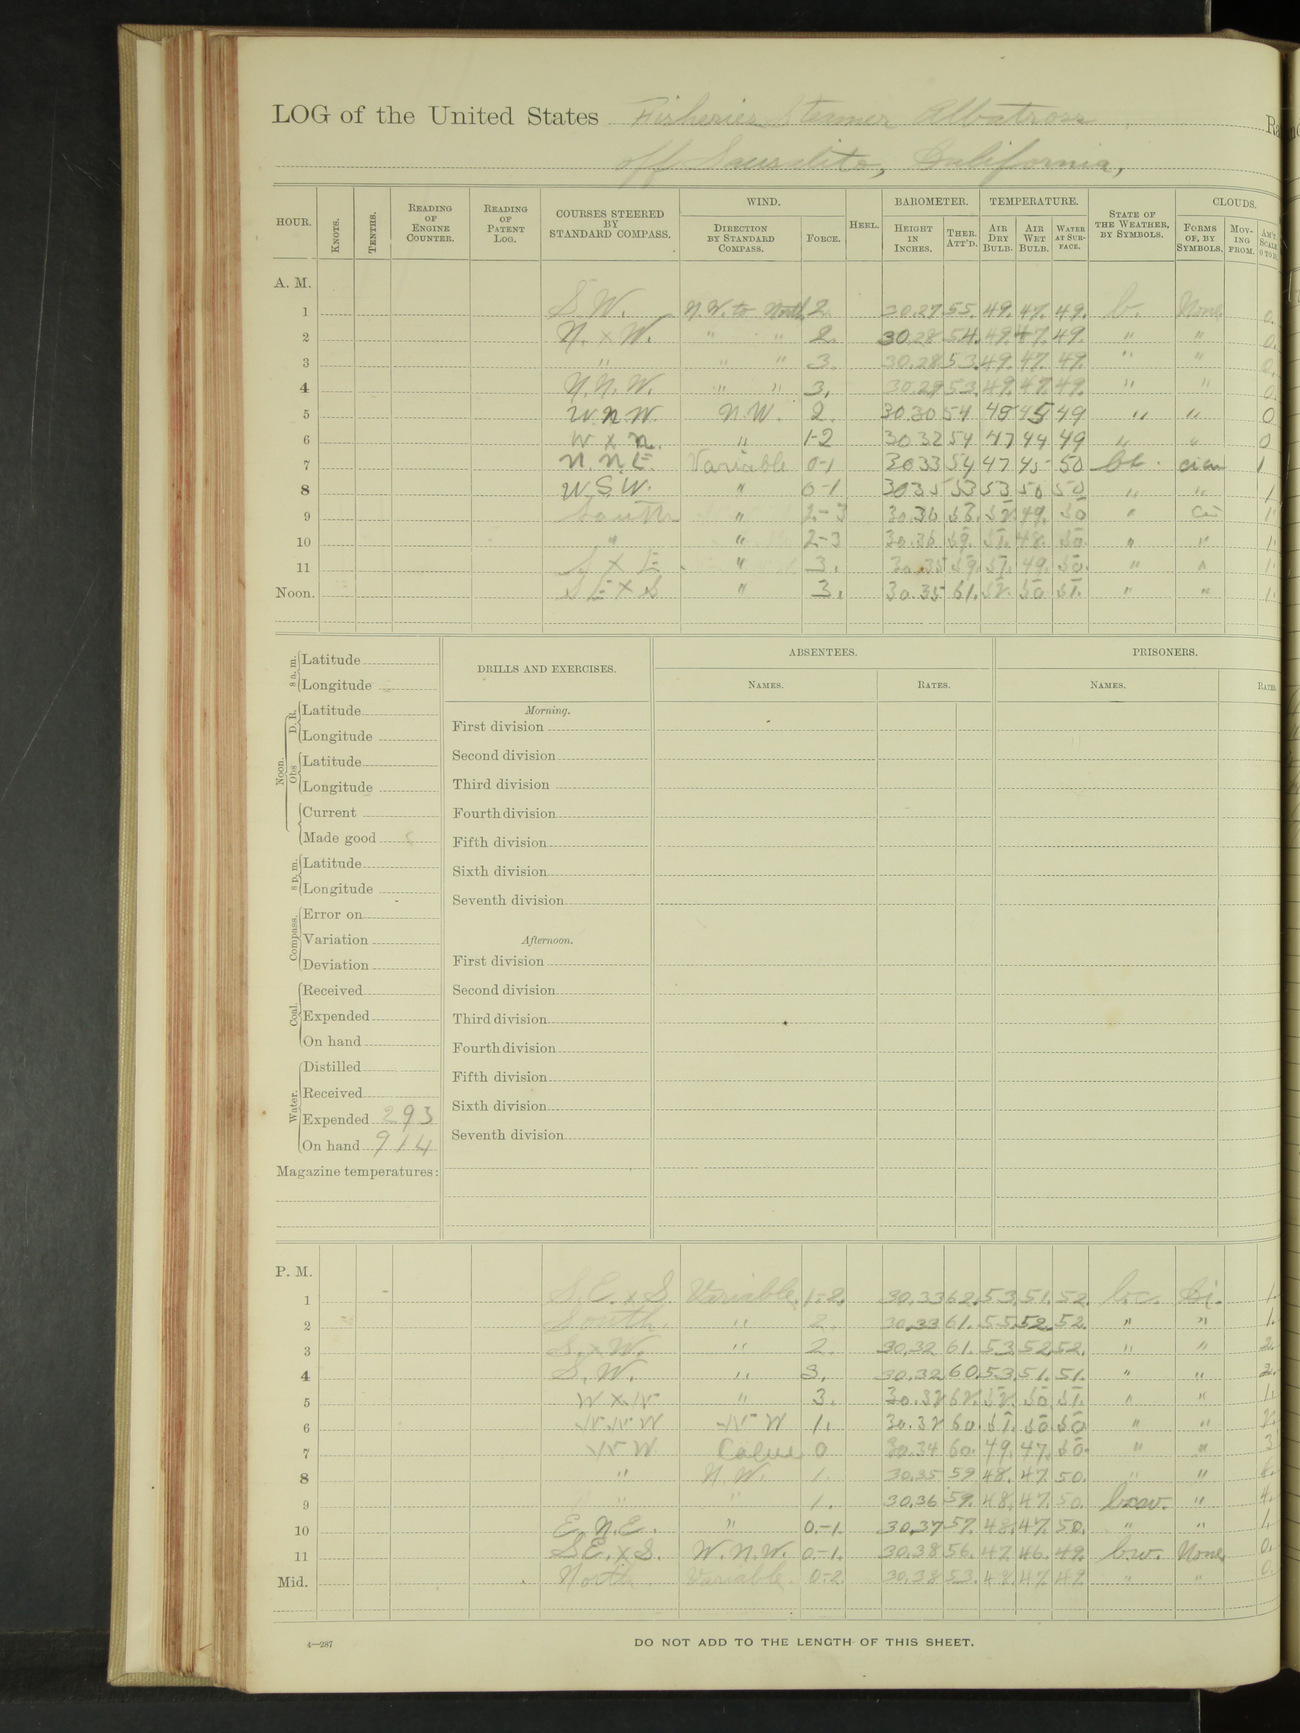 LOG of the United States Fisheries Steamer Albatross
off Sausalito, California,
HOUR. KNOTS. TENTHS. READING OF ENGINE COUNTER. READING OF PATENT LOG. COURSES STEERED BY STANDARD COMPASS. WIND. DIRECTION BY STANDARD COMPASS. FORCE. HEEL. BAROMETER. HEIGHT IN INCHES. THER. ATT'D. TEMPERATURE. AIR DRY BULB. AIR WET BULB. WATER AT SURFACE. STATE OF THE WEATHER, BY SYMBOLS. CLOUDS. FORMS OF, BY SYMBOLS. MOVING FROM.
A. M.
1 S.W. N.W. to North 2. 30.27 55. 49. 47. 49. b. None 0.
2 N. x W. " " 2. 30.28 54. 49. 47. 49. " " 0.
3 " " " 3. 30.28 53. 49. 47. 49. " " 0.
4 N.N.W. " " 3. 30.29 53. 49. 47. 49. " " 0
5 W.N.W. N.W. 2. 30.30 54 49 45 49 " " 0
6 W x N. " 1-2 30.32 54 47 44 49 " " 0
7 N.N.E. Variable 0-1 30.33 54 47 45 50 bc. ci cu 1
8 W.S.W. " 0-1 30.35 53 53 50 50 " " 1
9 South " 2-3 30.36 53. 52. 49. 50 " 1
10 " " 2-3 30.36 59. 51. 48. 50. " " 1.
11 S x E " 3. 30.35 59. 51. 49. 50. " " 1
Noon. SE x S " 3. 30.35 61. 52. 50 51. " " 1.
8 a. m. Latitude
Longitude
Noon. D. R. Latitude
Longitude
Obs. Latitude
Longitude
Current
Made good
8 p. m. Latitude
Longitude
Compass. Error on
Variation
Deviation
Coal. Received
Expended
On hand
Water. Distilled
Received
Expended 293
On hand 914
Magazine temperatures:
DRILLS AND EXERCISES.
Morning.
First division
Second division
Third division
Fourth division
Fifth division
Sixth division
Seventh division
Afternoon.
First division
Second division
Third division
Fourth division
Fifth division
Sixth division
Seventh division
ABSENTEES.
NAMES. RATES.
PRISONERS.
NAMES.
P. M.
1 S.E. x S. Variable. 1-2. 30.33 62. 53. 51. 52. b.c. 1.
2 South. " 2. 30.33 61. 55. 52. 52. " " 1.
3 S. x W. " 2. 30.32 61. 53 52 52. " " 2.
4 S. W. " 3. 30.32 60. 53. 51. 51. " " 2.
5 W x N " 3. 30.32 62. 52. 50. 51. " " 1.
6 N.N.W N W 1. 30.32 60. 51. 50 50 " "
7 N W Calm 0 30.34 60. 49. 47. 50. " " 3
8 " N.W. 1. 30.35 59 48. 47. 50. " "
9 " " 1. 30.36 59. 48. 47. 50. bcw. " 4.
10 E.N.E. " 0-1. 30.37 57. 48. 47. 50. " " 1.
11 S.E. x S. W.N.W. 0-1. 30.38 56. 47. 46. 49. b.w. None 0.
Mid. North Variable. 0-2 30.38 53. 48. 47. 49 " " 0.
4—287
DO NOT ADD TO THE LENGTH OF THIS SHEET.